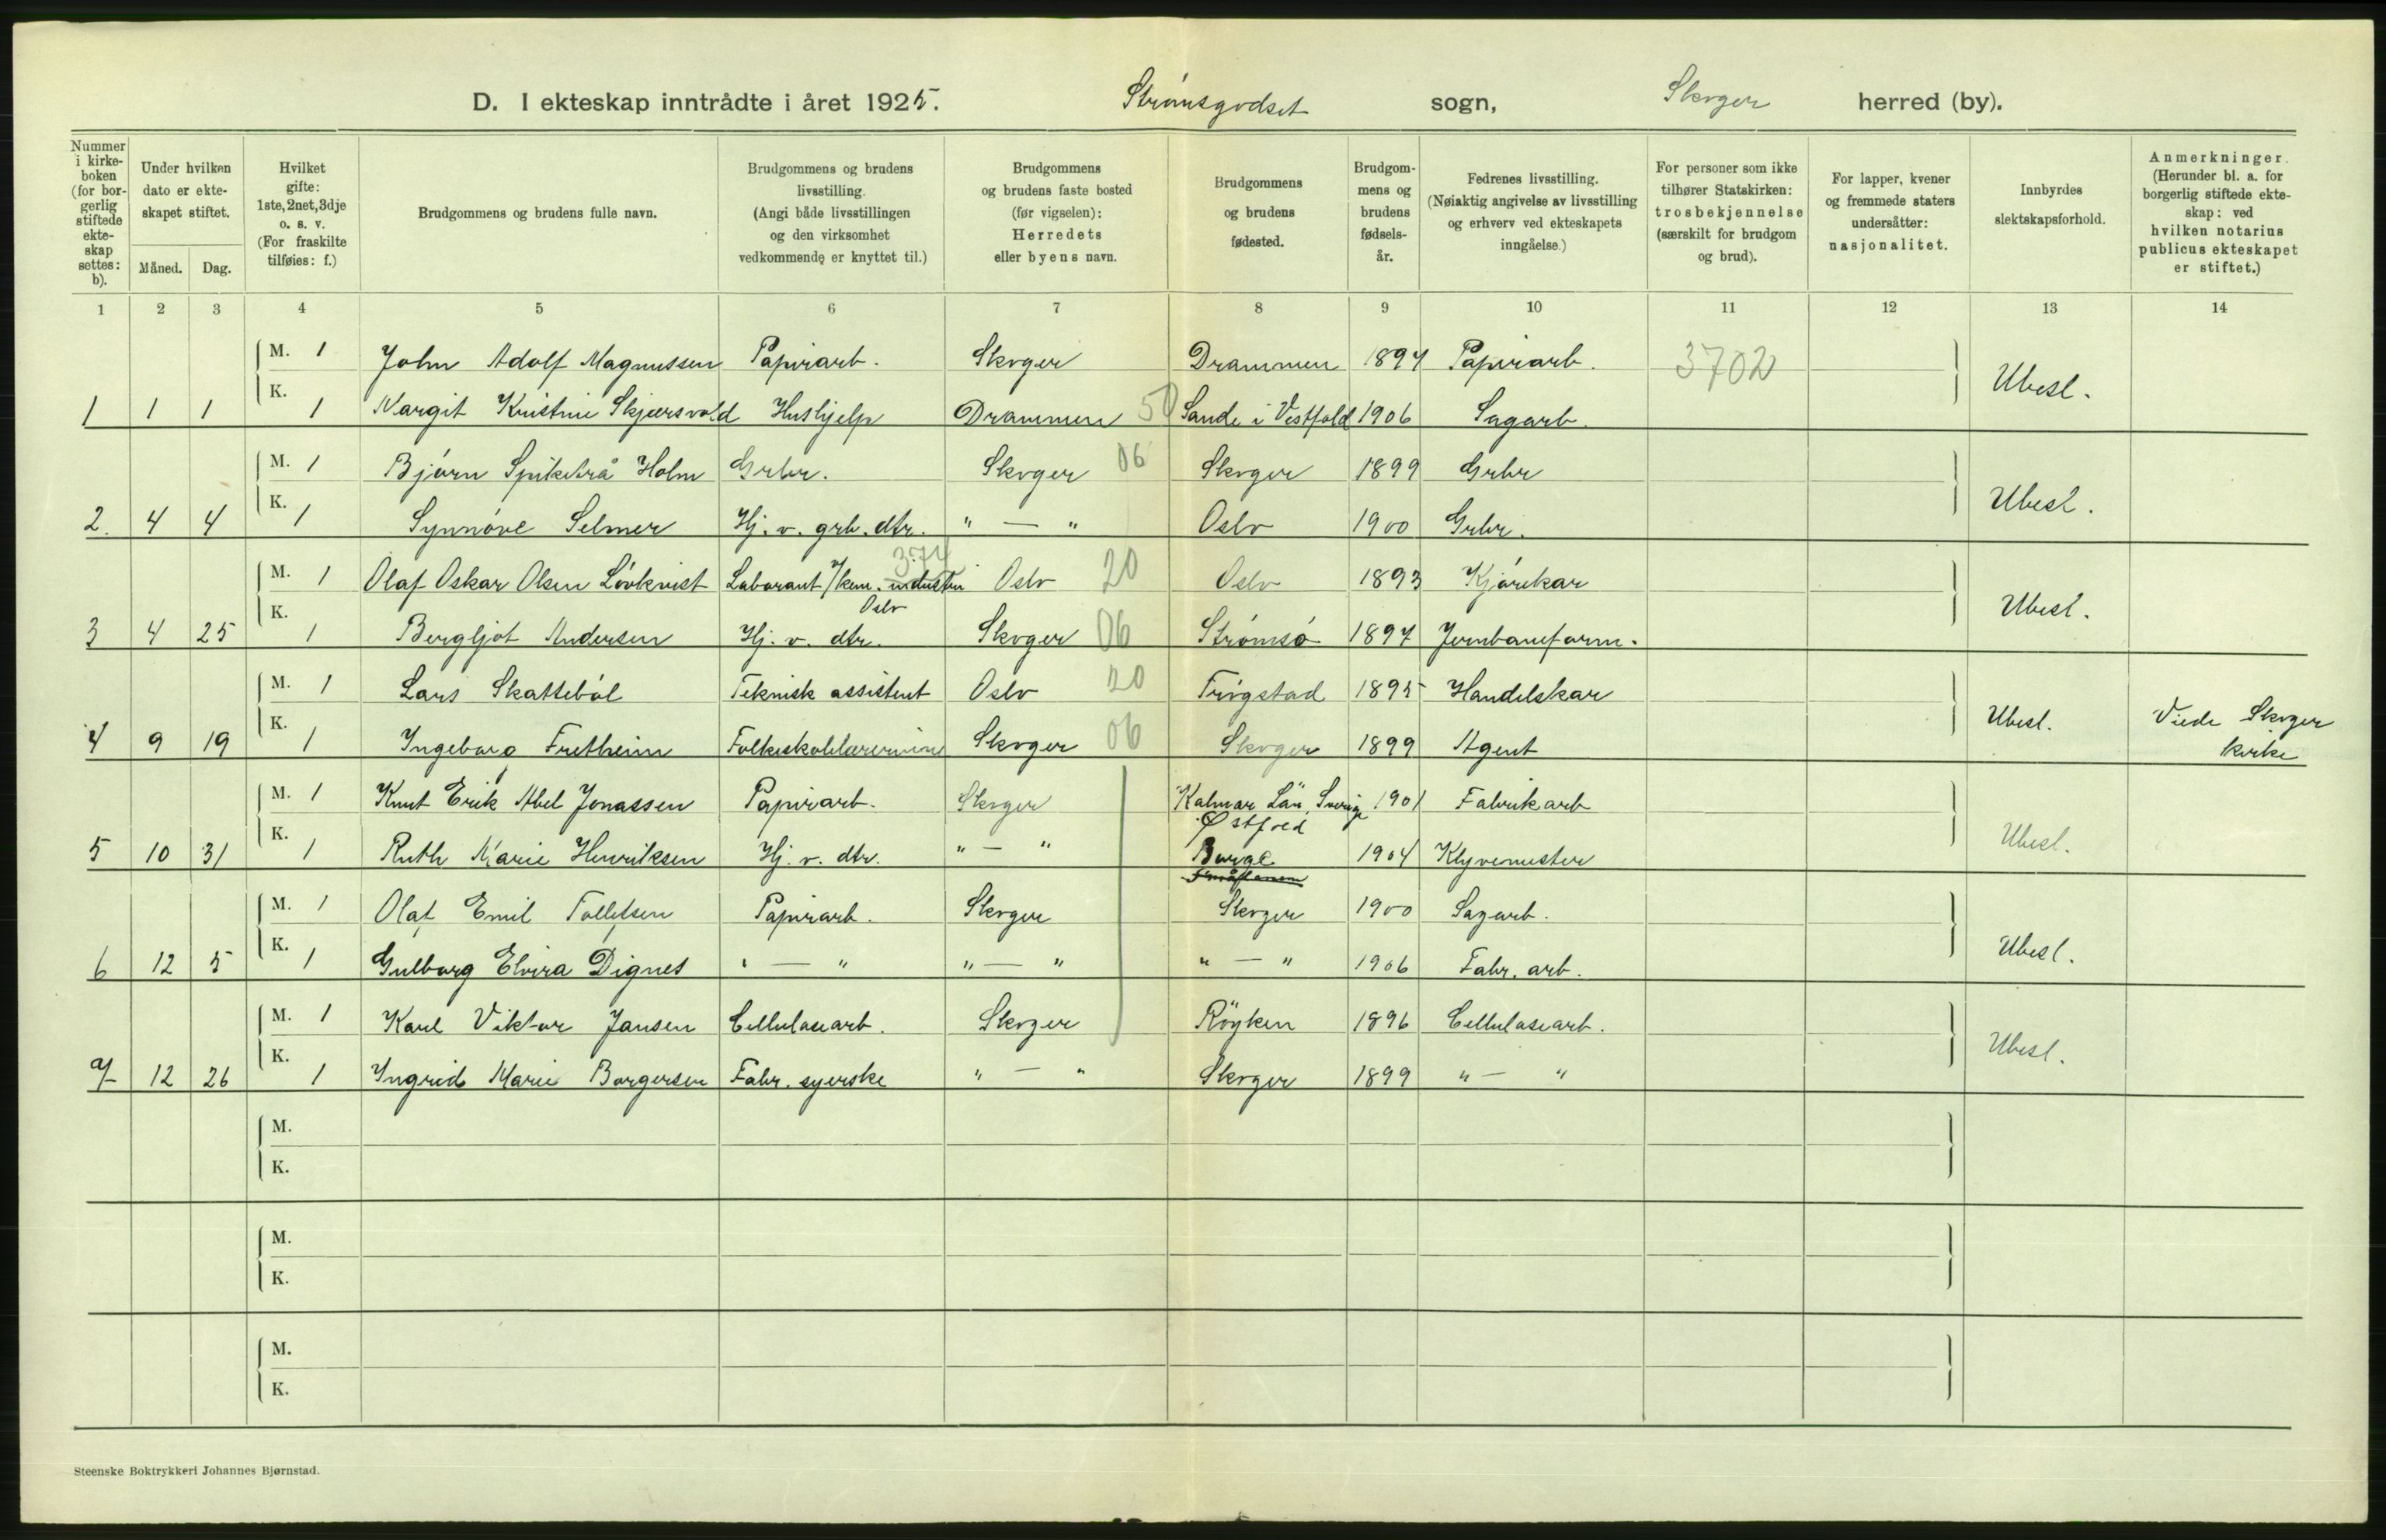 D. I ekteskap inntrådte i året 1925. Strømsgodset sogn, Skoger herred (by).
Nummer i kirkeboken (for borgerlig stiftede ekteskap settes: b).
Under hvilken dato er ekteskapet stiftet.
Måned. Dag.
Hvilket gifte: 1ste, 2net, 3dje o. s. v. (For fraskilte tilføies: f.)
Brudgommens og brudens fulle navn.
Brudgommens og brudens livsstilling. (Angi både livsstillingen og den virksomhet vedkommende er knyttet til.)
Brudgommens og brudens faste bosted (før vigselen): Herredets eller byens navn.
Brudgommens og brudens fødested.
Brudgommens og brudens fødselsår.
Fedrenes livsstilling. (Nøiaktig angivelse av livsstilling og erhverv ved ekteskapets inngåelse.)
For personer som ikke tilhører Statskirken: trosbekjennelse (særskilt for brudgom og brud).
For lapper, kvener og fremmede staters undersåtter: nasjonalitet.
Innbyrdes slektskapsforhold.
Anmerkninger. (Herunder bl. a. for borgerlig stiftede ekteskap: ved hvilken notarius publicus ekteskapet er stiftet.)
1 2 3 4 5 6 7 8 9 10 11 12 13 14
M. 1 John Adolf Magnussen Papirarb. Skoger Drammen 1897 Papirarb. 3702
1 1 1 K. 1 Margit Kristine Skjærsvold Hushjelp Drammen 50 Sande i Vestfold 1906 Sagarb. Ubesl.
M. 1 Bjørn Spiketrå Holm Grbr. Skoger 06 Skoger 1899 Grbr
2. 4 4 K. 1 Synnøve Selmer Hj. v. grb. dtr. " — " Oslo 1900 Grbr. Ubesl.
374
M. 1 Olaf Oskar Olsen Lövkvist Laborant v/kem. industri Oslo Oslo 20 Oslo 1893 Kjørekar
3 4 25 K. 1 Bergljot Andersen Hj. v. dtr. Skoger 06 Strømsø 1897 Jernbaneform. Ubesl.
M. 1 Lars Skattebøl Teknisk assistent Oslo 20 Trøgstad 1895 Handelskar
4 9 19 K. 1 Ingeborg Fretheim Folkeskolelærerinne Skoger 06 Skoger 1899 Agent Ubesl. Viede Skoger kirke
M. 1 Knut Erik Abel Jonassen Papirarb. Skoger Kalmar Län, Sverige 1901 Fabrikarb
5 10 31 K. 1 Ruth Marie Henriksen Hj. v. dtr. " — " Østfold Borge 1904 Klyvemester Ubesl.
M. 1 Olaf Emil Tollefsen Papirarb. Skoger Skoger 1900 Sagarb.
6 12 5 K. 1 Gulborg Elvira Dignes " — " " — " " — " 1906 Fabr. arb. Ubesl.
M. 1 Karl Viktor Jansen Cellulosearb. Skoger Röyken 1896 Cellulosearb.
7 12 26 K. 1 Ingrid Marie Borgersen Fabr. syerske " — " Skoger 1899 " — " Ubesl.
M.
K.
M.
K.
M.
K.
Steenske Boktrykkeri Johannes Bjørnstad.